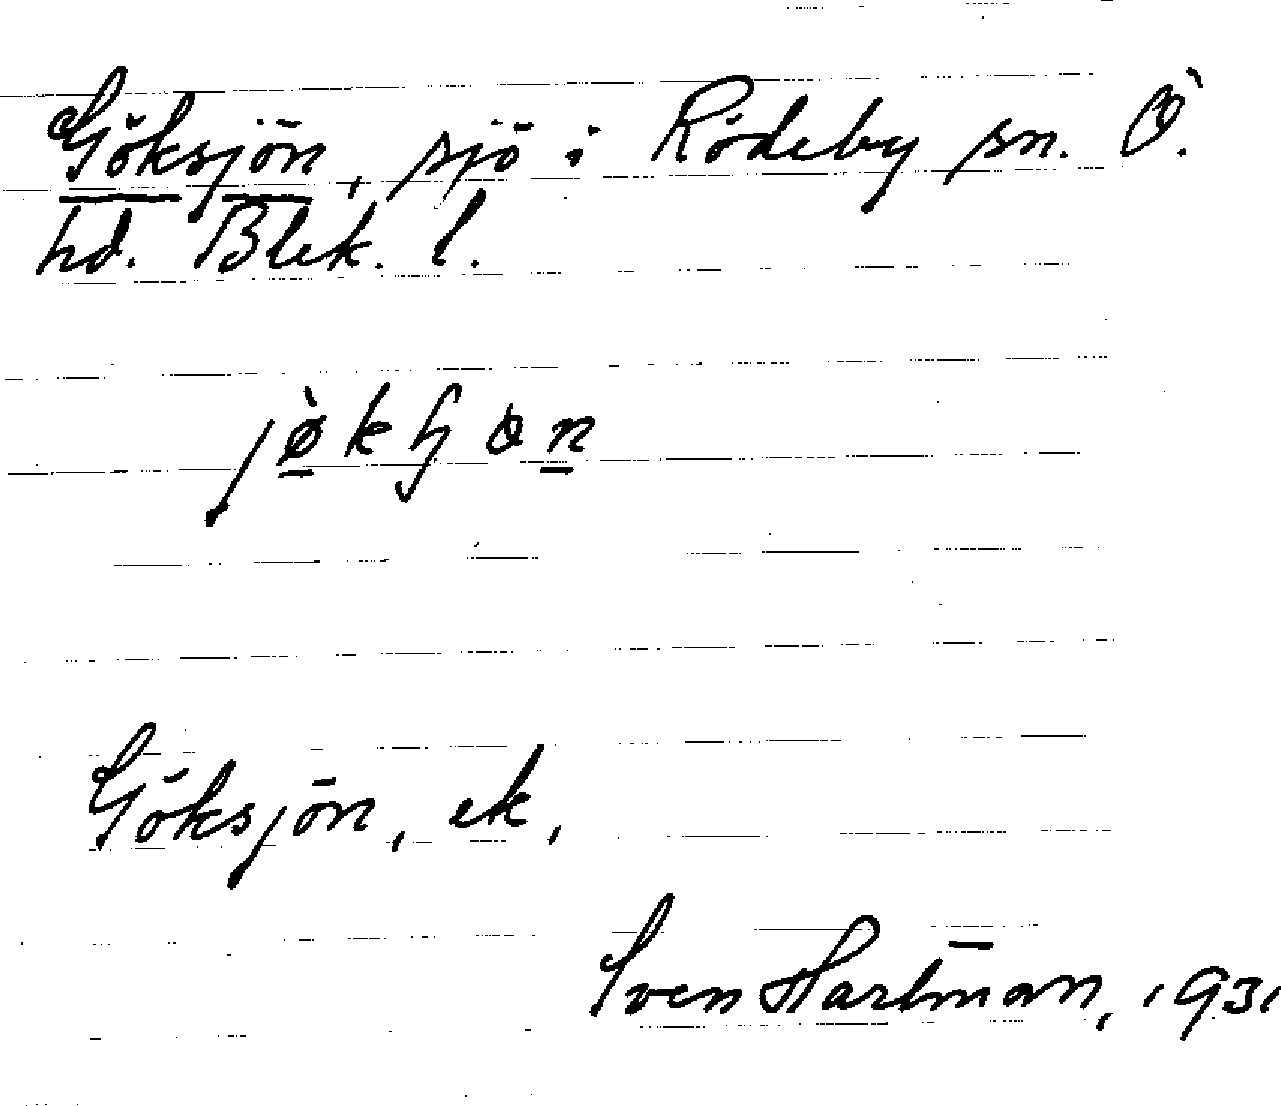 Göksjön, sjö i Rödeby sn. Ö.
hd. Blek. l.
Göksjön, ek,
Sven Hartman, 1931